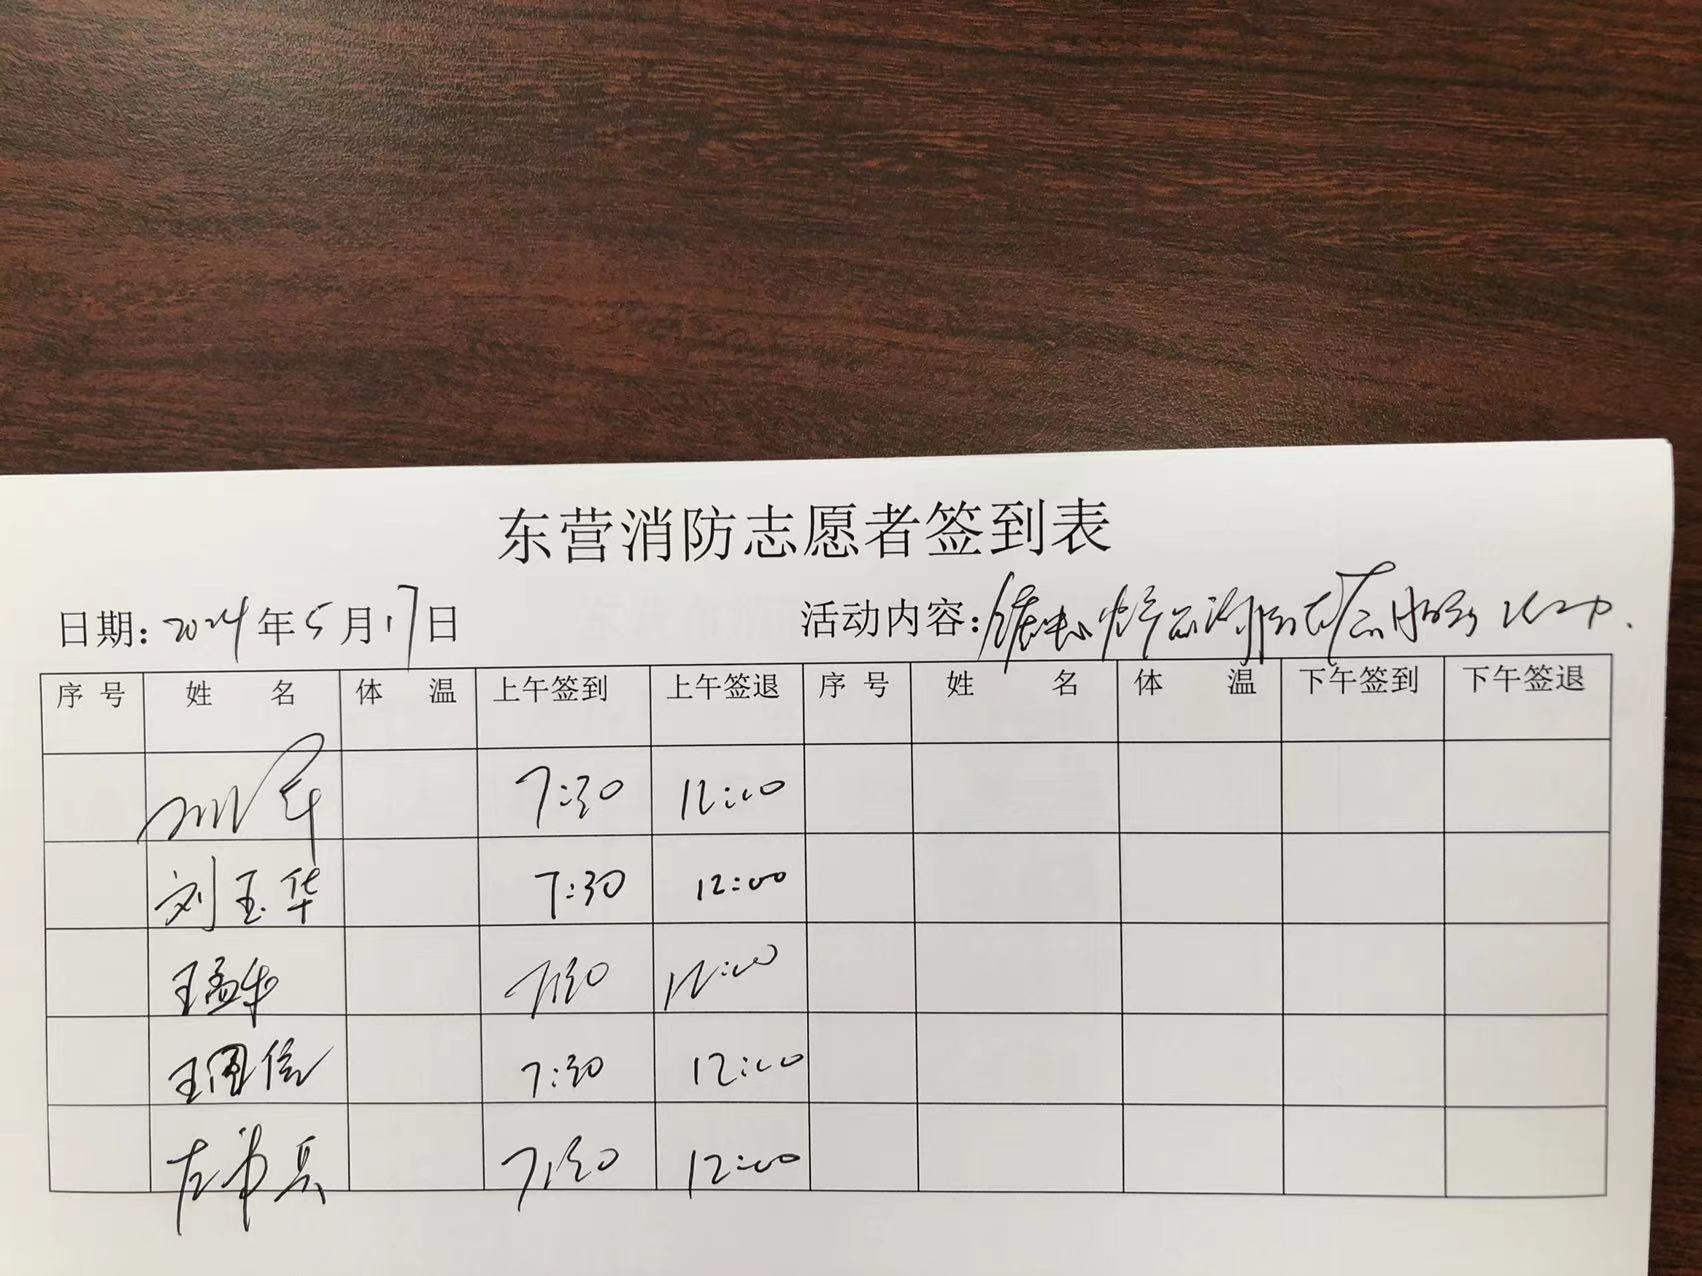 东营消防志愿者签到表
日期: 2024年5月17日 活动内容:
序号 姓名 体温 上午签到 上午签退 序号 姓名 体温 下午签到 下午签退
7:30 12:00
刘玉华 7:30 12:00
王孟华 7:30 12:00
王国信 7:30 12:00
7:30 12:00